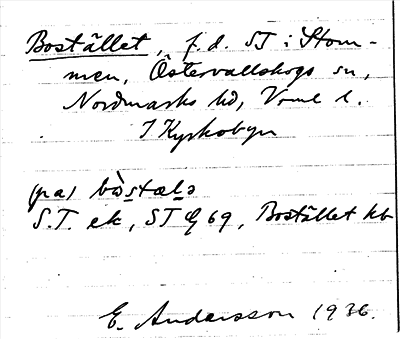 Bostället, f.d. ST i Stom-
men, Östervallskogs sn,
Nordmarks hd, Vrml l.
I Kyrkobyn
(pa) bòstælə
S.T. ek, ST G 69, Bostället kb
E. Andersson 1936.